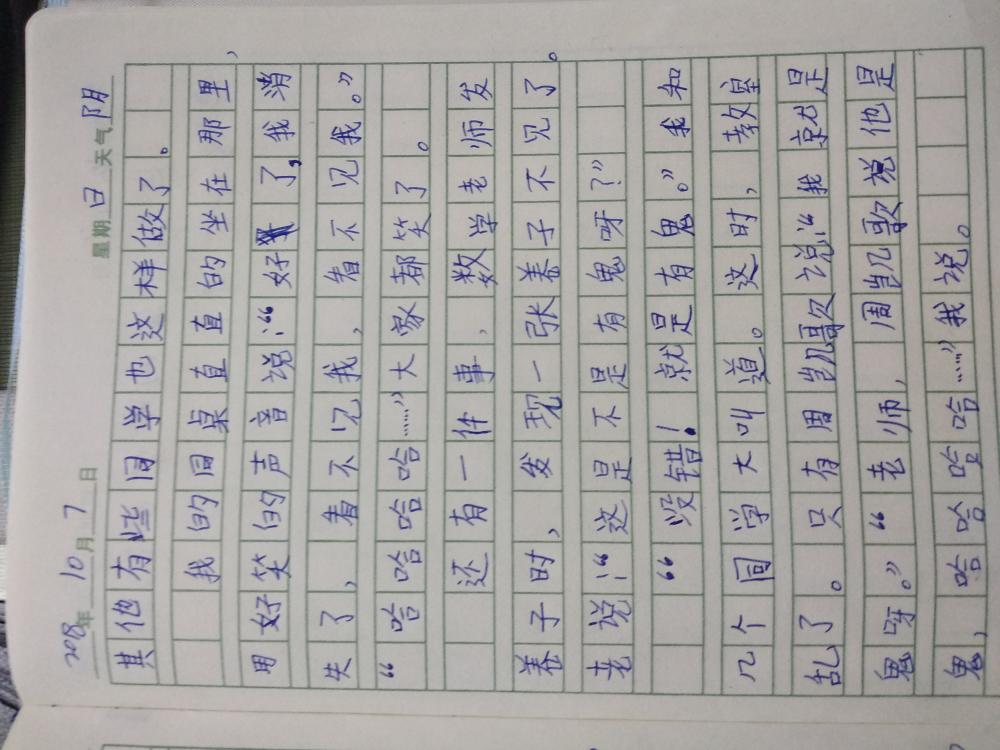 2018年10月7日 星期日 天气阴
其他有些同学也这样做了。
我的同桌直直的坐在那里，
用好笑的声音说：“好了，我消
失了，看不见我，看不见我。”
“哈哈哈哈……”大家都笑了。
还有一件事，数学老师发
卷子时，发现一张卷子不见了。
老说：“这是不是有鬼呀？”
“没错！就是有鬼。”我和
几个同学大叫道。这时，教室
乱了。只有周凯歌说：“我就是
鬼呀。”“老师，周凯歌说他是
鬼，哈哈哈哈……”我说。